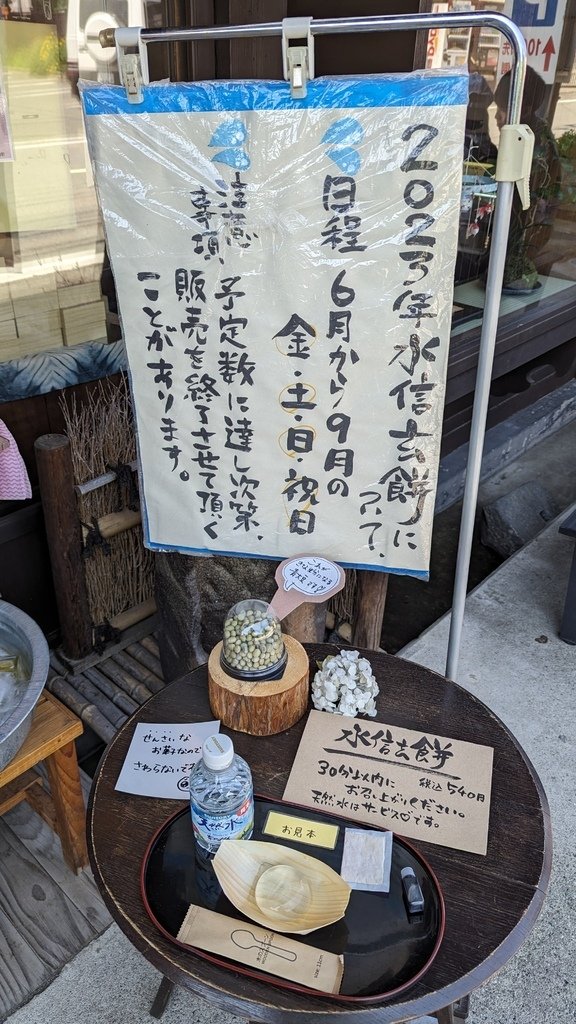 2023年水信玄餅に
ついて、
日程 6月から9月の
金・土・日・祝日
注意
事項
予定数に達し次第、
販売を終了させて頂く
ことがあります。
これが
きな粉になる
青大豆です!!
せんさいな
お菓子なので
さわらないで
水信玄餅
30分以内に 税込540円
お召し上がりください。
天然水はサービス♡です。
お見本
天然水